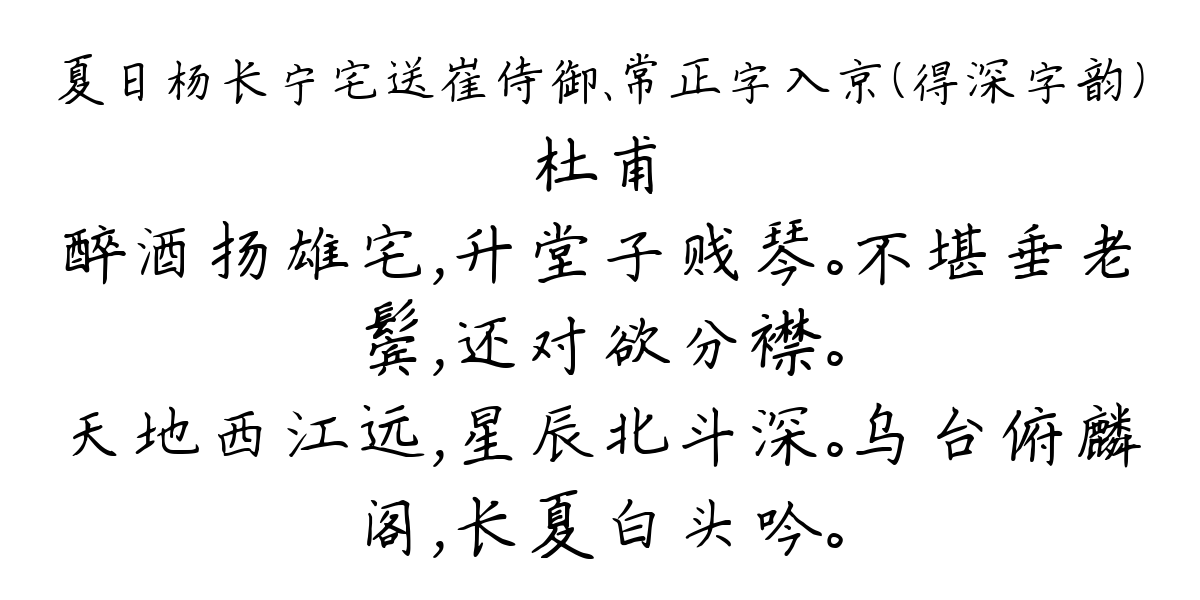 夏日杨长宁宅送崔侍御、常正字入京(得深字韵)
杜甫
醉酒扬雄宅,升堂子贱琴。不堪垂老
鬓,还对欲分襟。
天地西江远,星辰北斗深。乌台俯麟
阁,长夏白头吟。